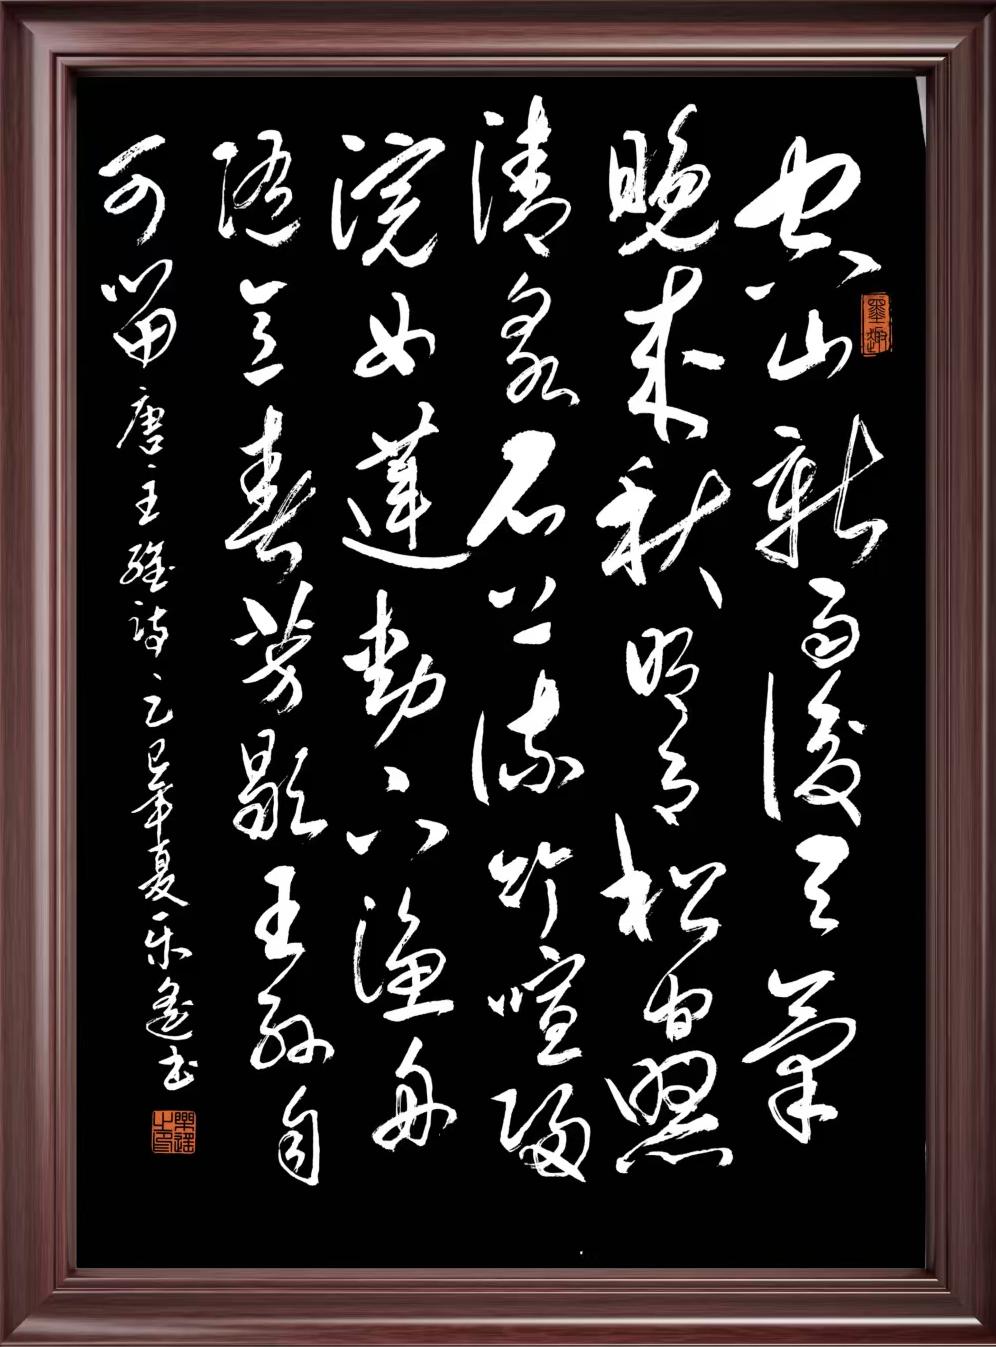 空山新雨後天氣
墨趣
晚来秋明月松間照
清泉石上流竹喧歸
浣女蓮動下漁舟
随意春芳歇王孫自
可留
唐王維詩乙巳年夏乐遥书
樂遥之印